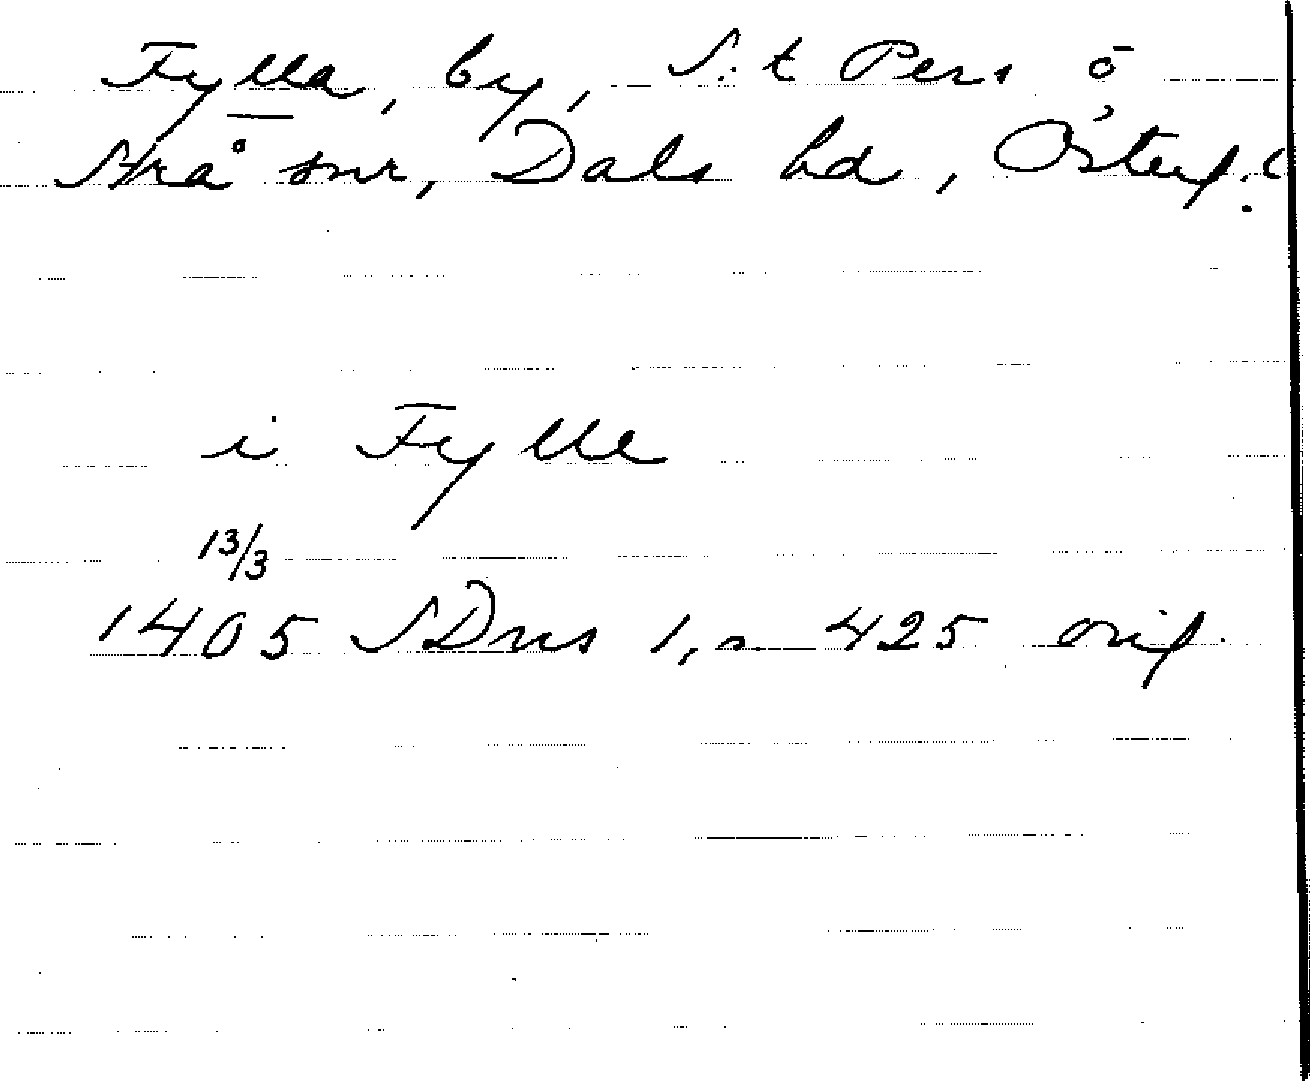 Fylla, by, S:t Pers o
Stra snr, Dals hd, Österg:
i Fylle
13/3
1405 SDns 1, s 425 orig.